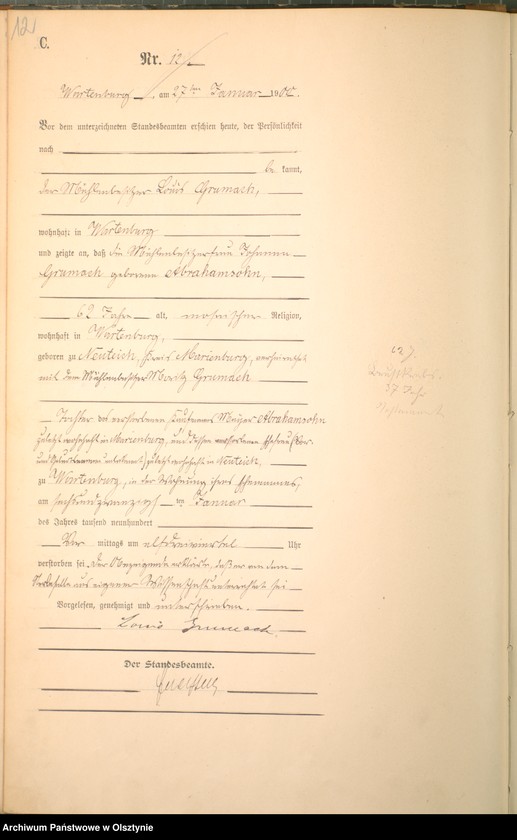 12
C.
Nr. 12
Wartenburg, am 27ten Januar 1900.
Vor dem unterzeichneten Standesbeamten erschien heute, der Persönlichkeit
nach
be kannt,
der Mühlenbesitzer Louis Grumach,
wohnhaft in Wartenburg
und zeigte an, daß die Mühlenbesitzerfrau Johanna
Grumach geborene Abrahamsohn,
62 Jahre alt, mosaischer Religion,
wohnhaft in Wartenburg,
geboren zu Neuteich, Kreis Marienburg, verheirathet
mit dem Mühlenbesitzer Moritz Grumach
Tochter des verstorbenen Kaufmanns Meyer Abrahamsohn
zuletzt wohnhaft in Marienburg, und dessen verstorbenen Ehefrau (Vor-
und unbekannt) zuletzt wohnhaft in Neuteich,
zu Wartenburg, in der Wohnung ihres Ehemannes,
am sechsundzwanzigsten Januar
des Jahres tausend neunhundert
Vor mittags um elfdreiviertel Uhr
verstorben sei. Der Anzeigende erklärte, daß er von dem
Sterbefalle aus eigener Wissenschaft unterrichtet sei
Vorgelesen, genehmigt und unterschrieben.
Louis Grumach.
Der Standesbeamte.
62 J.
37 Jahr
Archiwum Państwowe w Olsztynie